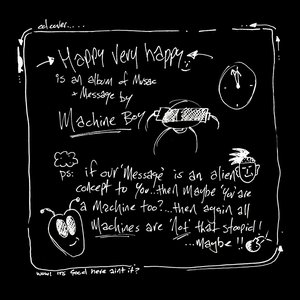 cd cover...
Happy very happy
is an album of Music
+ Message by
Machine Boy
ps: if our 'Message' is an alien
concept to You..then Maybe 'You are
a Machine too?...then again all
Machines are 'Not' that stoopid!
...Maybe!!
wow! its good here aint it?